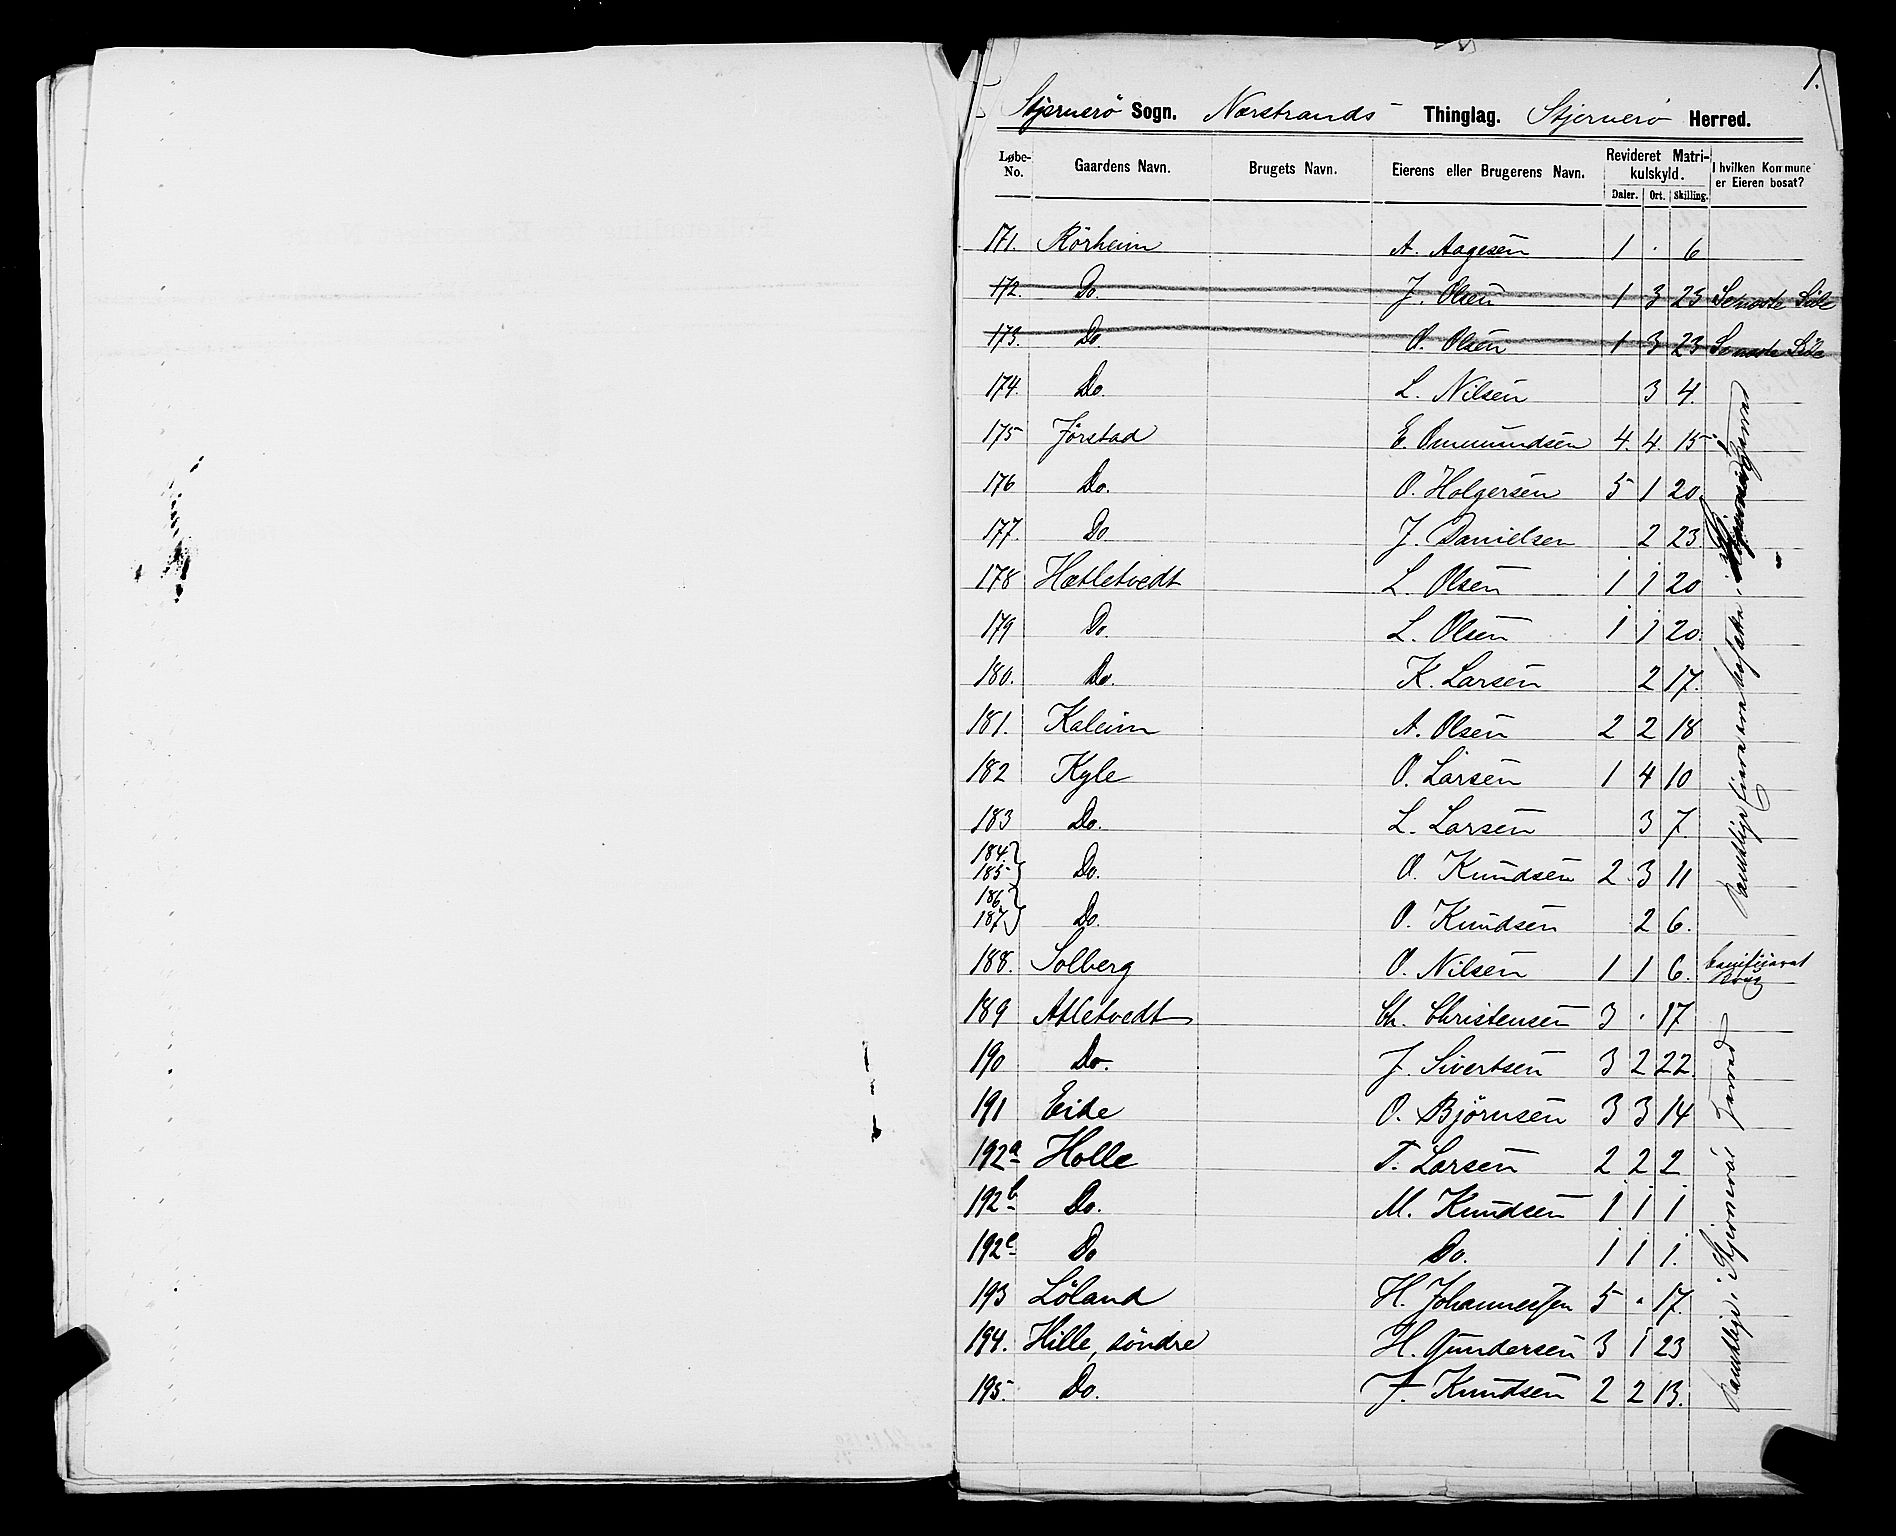 1.
Stjernerö Sogn. Nærstrands Thinglag. Stjernerö Herred.
Løbe-No. Gaardens Navn. Brugets Navn. Eierens eller Brugerens Navn. Revideret Matrikulskyld. I hvilken Kommune er Eieren bosat?
Daler. Ort. Skilling.
171. Rörheim A. Aagesen 1 . 6
172. Do. J. Olsen 1 3 23 Seneste Side
173. Do. O. Olsen 1 3 23 Seneste Side
174. Do. L. Nilsen 3 4.
175 Jörstad E. Ommundsen 4. 4. 15
176 Do. O. Holgersen 5 1 20
177. Do J. Danielsen 2 23
178 Hætletvedt L. Olsen 1 1 20
179 Do. L. Olsen 1 1 20.
180. Do. K. Larsen 2 17.
181. Kaleim A. Olsen 2 2 18
182 Kyle O. Larsen 1 4 10
183 Do. L. Larsen 3 7
184. 185 Do. O. Knudsen 2. 3 11
186 187 Do. O. Knudsen 2 6.
188. Solberg O. Nilsen 1 1 6.
189 Atletvedt Ch. Christensen 3 . 17
190 Do. J. Sivertsen 3 2 22.
191 Eide O. Björnsen 3 3 14
192a Holle T. Larsen 2 2 2
192b Do. M. Knudsen 1 1 1
192c Do Do. 1 1 1.
193 Löland H. Johannessen 5 . 17.
194. Hille, söndre H. Gundersen 3 1 23
195. Do. J. Knudsen 2 2 13.
Samtlige i Stjernerö Herred